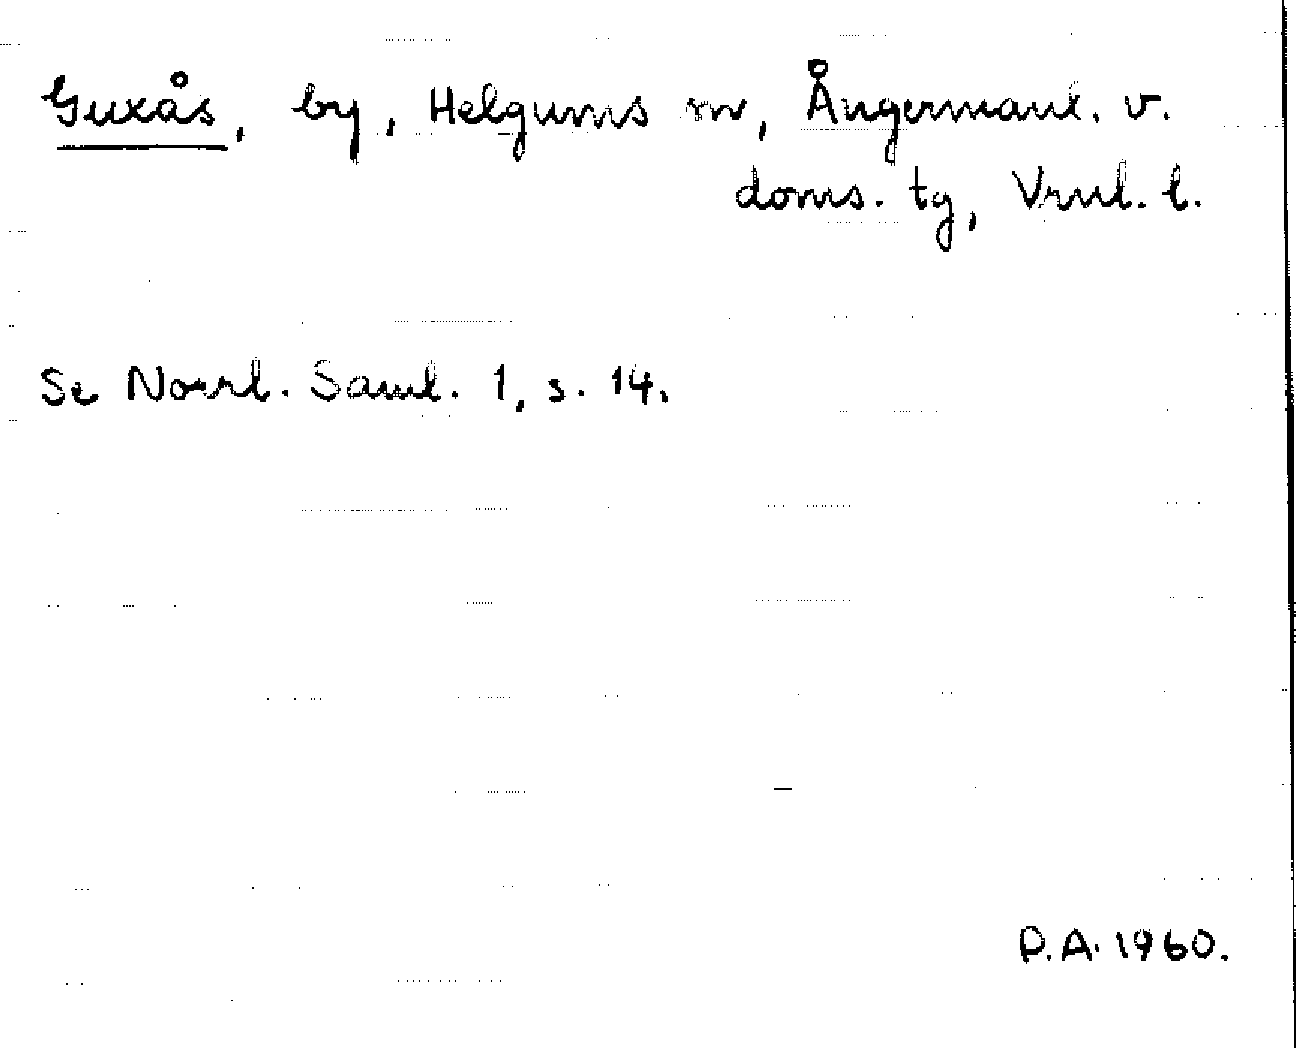 Guxås, by, Helgums sn, Ångermanl. v.
doms. tg, Vrnl. l.
Se Norrl. Saml. 1, s. 14.
D.A. 1960.